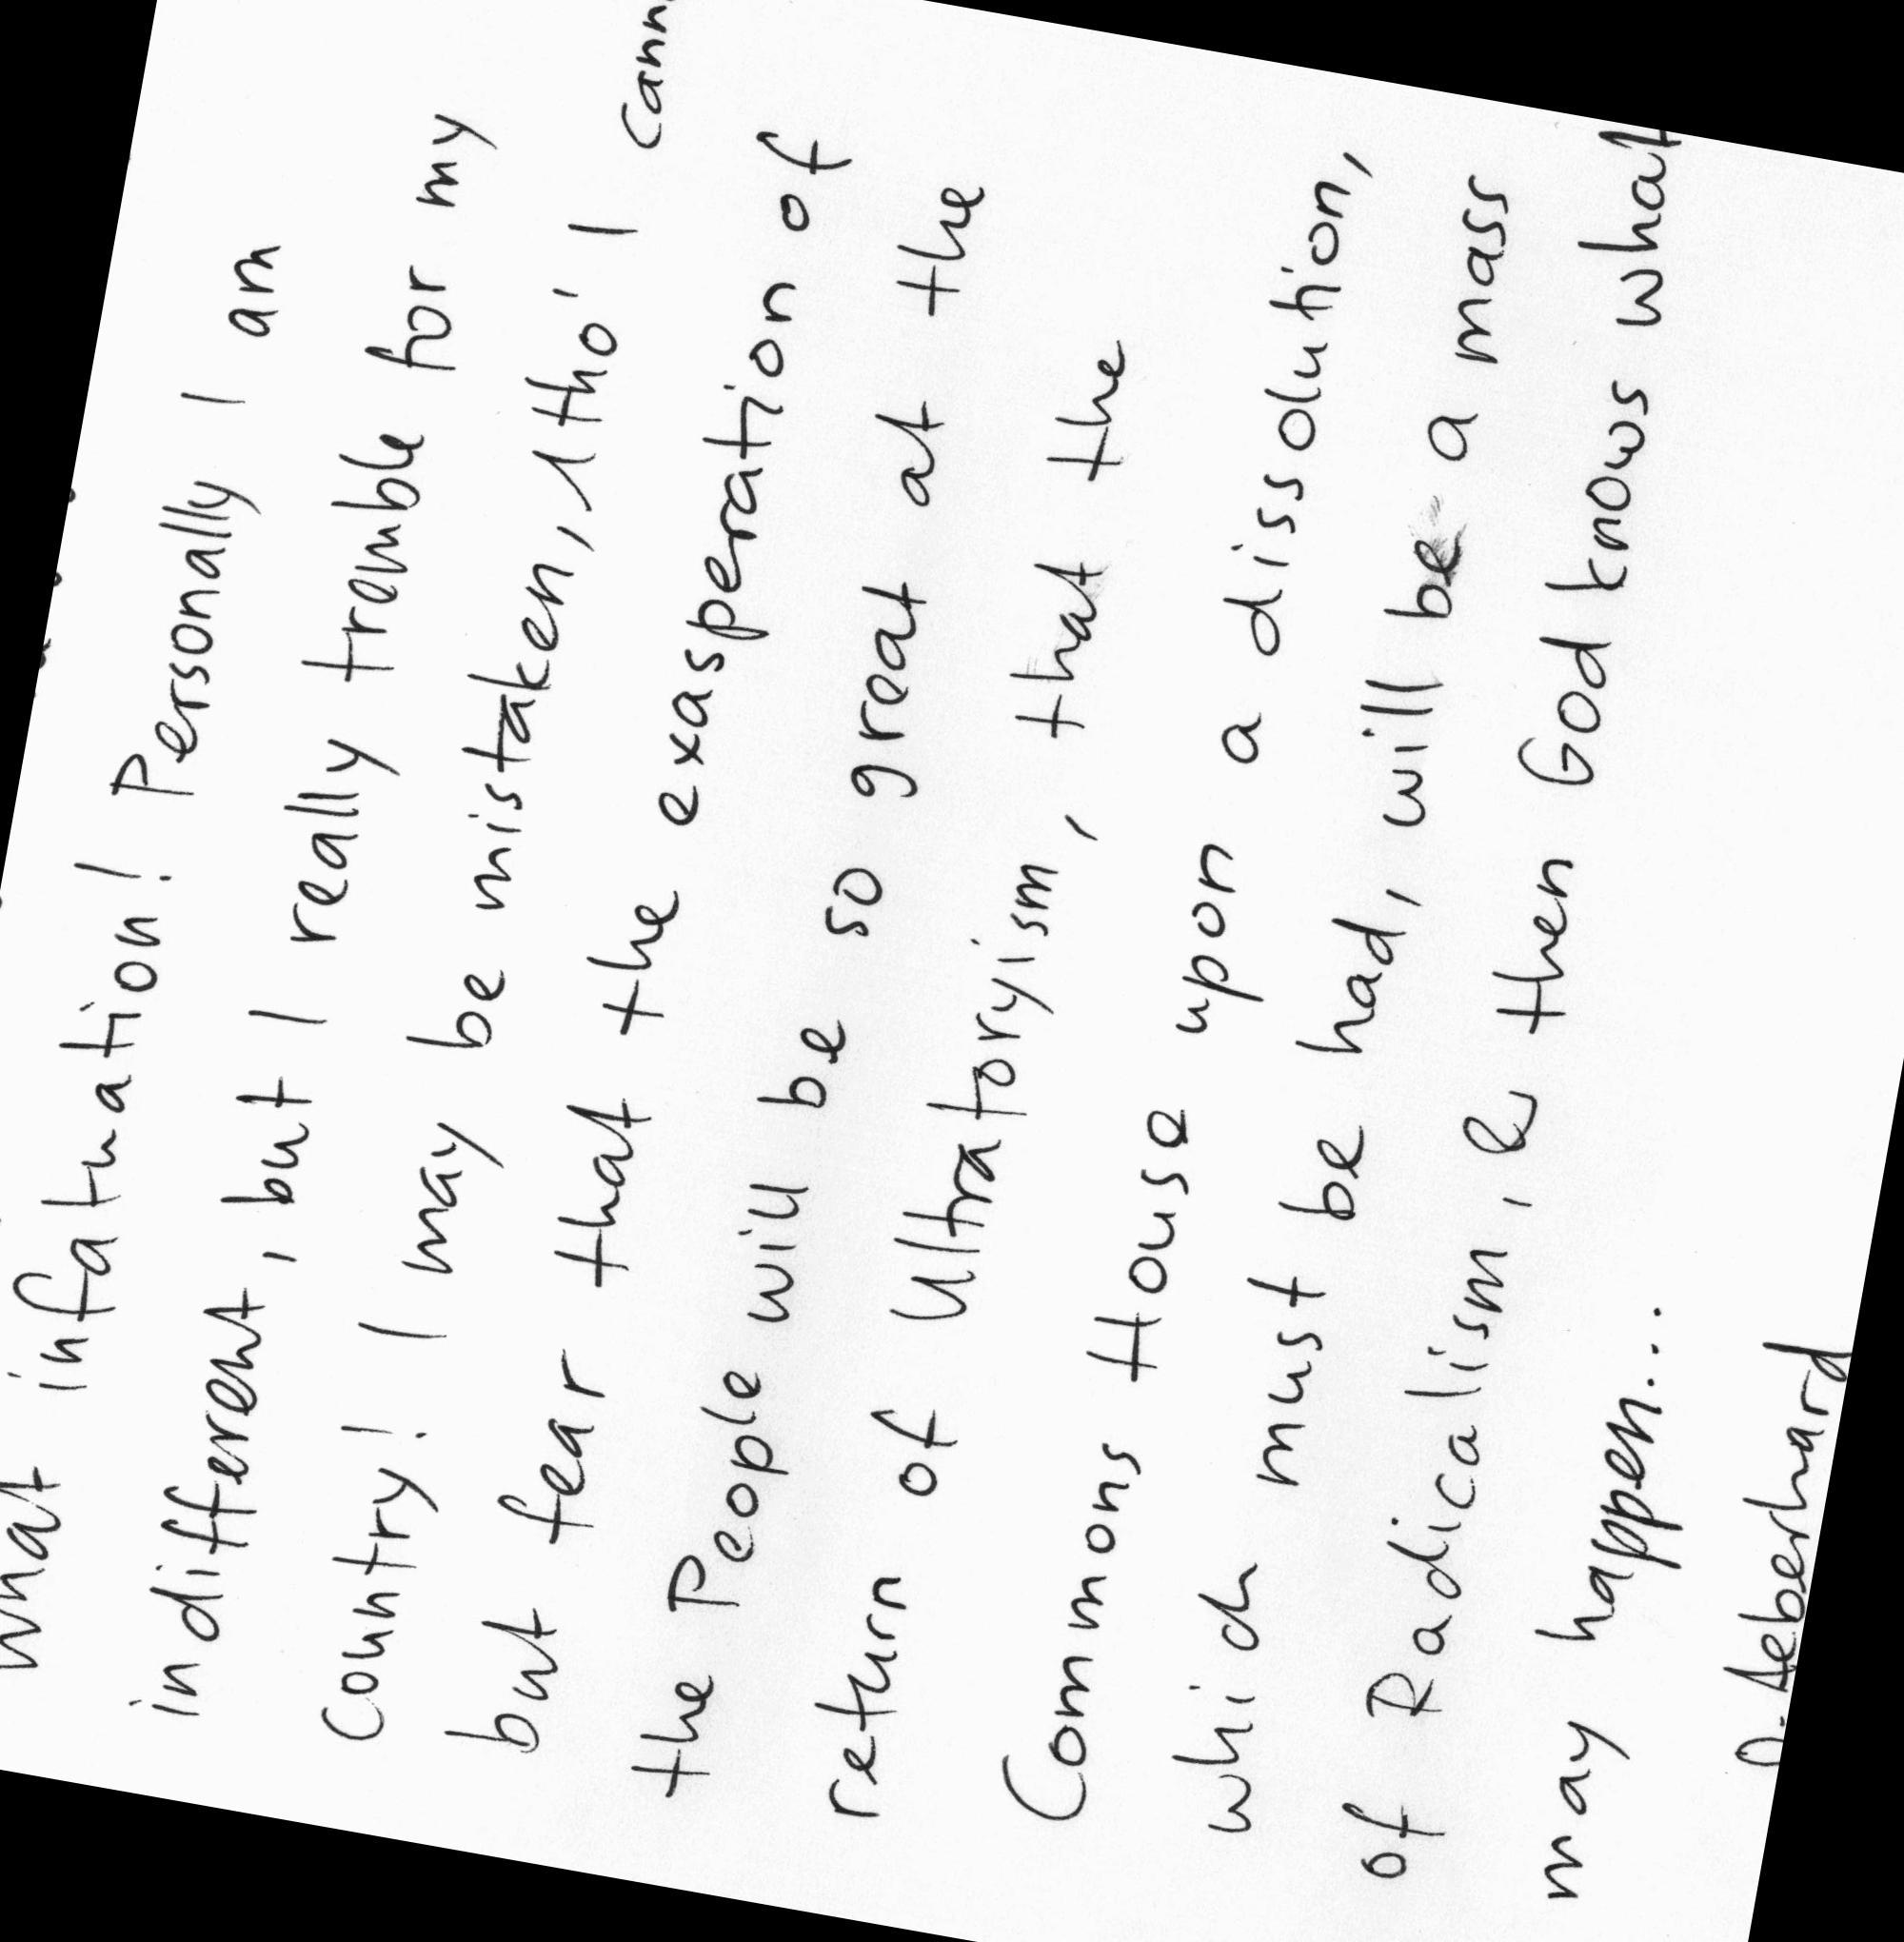 what infatuation! Personally I am
indifferent, but I really tremble for my
Country! I may be mistaken, tho' I
but fear that the exasperation of
the People will be so great at the
return of Ultratoryism, that the
Commons House upon a dissolution,
which must be had, will be a mass
of Radicalism, & then God knows what
may happen....
D. Aeberhard